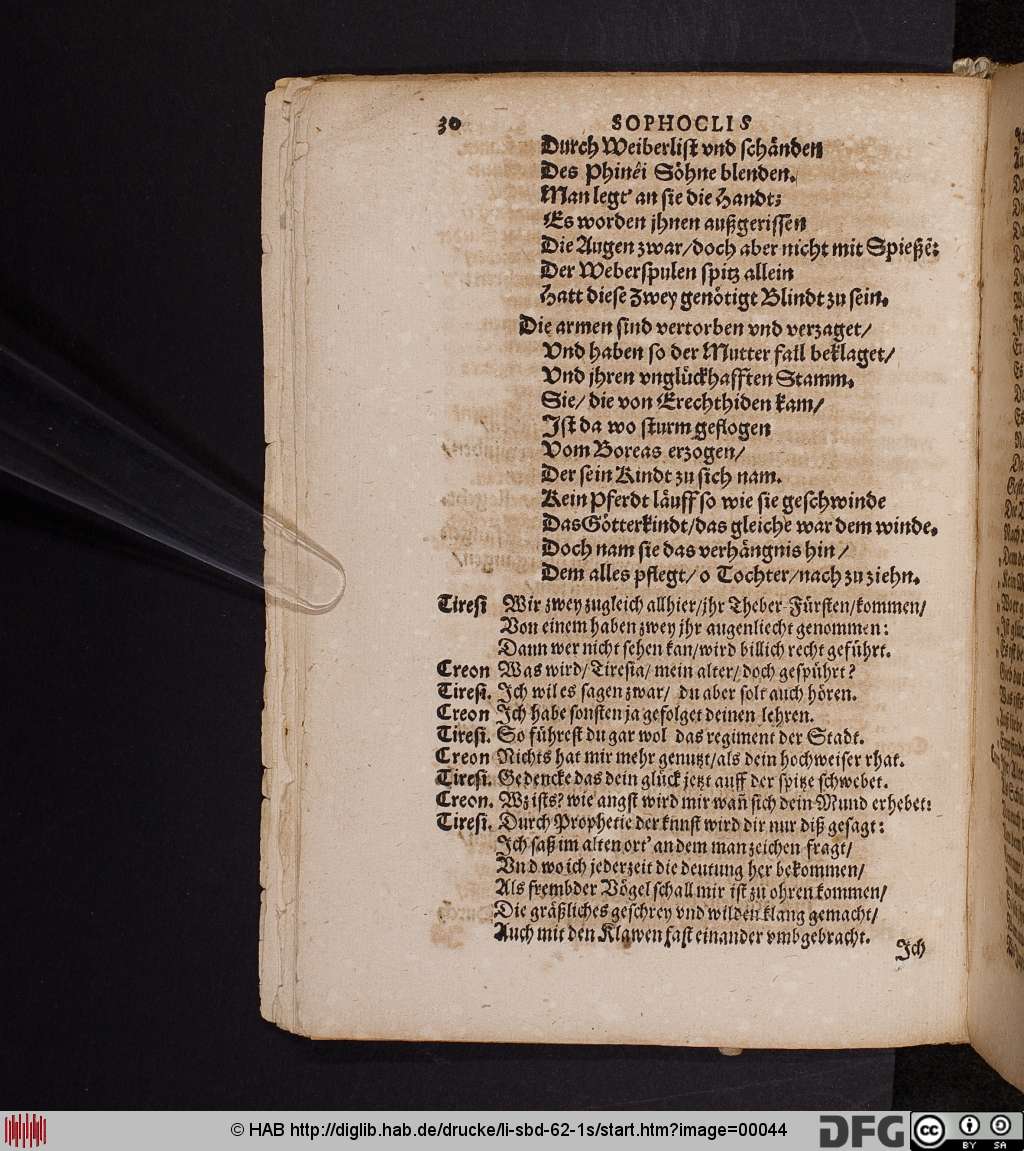 30 SOPHOCLIS
Durch Weiberlist vnd schänden
Des Phinêi Söhne blenden.
Man legt' an sie die Handt;
Es worden jhnen außgerissen
Die Augen zwar/doch aber nicht mit Spießē:
Der Weberspulen spitz allein
Hatt diese Zwey genötigt Blindt zu sein.
Die armen sind vertorben vnd verzaget/
Vnd haben so der Mutter fall beklaget/
Vnd jhren vnglückhafften Stamm.
Sie/ die von Erechthiden kam/
Ist da wo sturm geflogen
Vom Boreas erzogen/
Der sein Kindt zu sich nam.
Kein Pferdt läuff so wie sie geschwinde
Das Götterkindt/das gleiche war dem winde.
Doch nam sie das verhängnis hin/
Dem alles pflegt/ o Tochter/nach zu ziehn.
Tiresi Wir zwey zugleich allhier/jhr Theber-Fürsten/kommen/
Von einem haben zwey jhr augenliecht genommen:
Dann wer nicht sehen kan/wird billich recht geführt.
Creon Was wird/Tiresia/ mein alter/ doch gespührt?
Tiresi. Ich wil es sagen zwar/ du aber solt auch hören.
Creon Ich habe sonsten ja gefolget deinen lehren.
Tiresi. So führest du gar wol das regiment der Stadt.
Creon Nichts hat mir mehr genutzt/als dein hochweiser rhat.
Tiresi. Gedencke das dein glück jetzt auff der spitze schwebet.
Creon. Wz ists? wie angst wird mir wañ sich dein Mund erhebet:
Tiresi. Durch Prophetie der knnst wird dir nur diß gesagt:
Ich saß im alten ort' an dem man zeichen fragt/
Vnd wo ich jederzeit die deutung her bekommen/
Als frembder Vögel schall mir ist zu ohren kommen/
Die gräßliches geschrey vnd wilden klang gemacht/
Auch mit den Klawen fast einander vmbgebracht.
Ich
© HAB http://diglib.hab.de/drucke/li-sbd-62-1s/start.htm?image=00044
DFG
cc BY SA